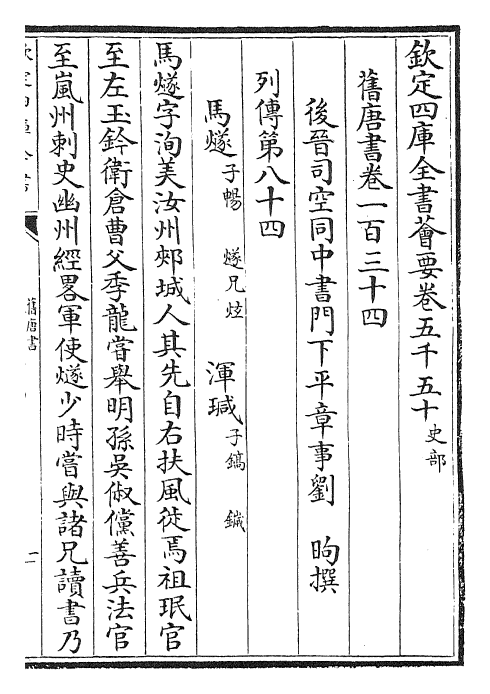 欽定四庫全書薈要卷五千五十 史部
舊唐書卷一百三十四
後晉司空同中書門下平章事劉昫撰
列傳第八十四
馬燧 子暢 燧兄炫 渾瑊 子鎬 鐬
馬燧字洵美汝州郟城人其先自右扶風徙焉祖珉官
至左玉鈐衛倉曹父季龍嘗舉明孫吳俶儻善兵法官
至嵐州刺史幽州經畧軍使燧少時嘗與諸兄讀書乃
舊唐書